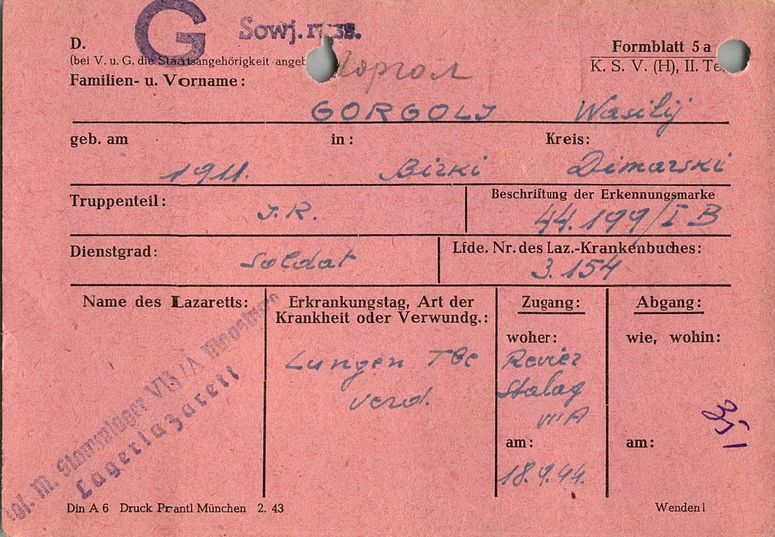 G Sowj. russ.
D. Formblatt 5 a
(bei V. u. G. die Staatsangehörigkeit angeb K. S. V. (H), II. Te
Familien- u. Vorname:
GORGOLJ Wasilij
geb. am in: Kreis:
1911. Birki Dimarski
Truppenteil: J.R. Beschriftung der Erkennungsmarke
44.199/I B
Dienstgrad: Soldat Lfde. Nr. des Laz.-Krankenbuches:
3.154
Name des Lazaretts: Erkrankungstag, Art der Krankheit oder Verwundg.: Zugang: Abgang:
woher: wie, wohin:
Kgf. M. Stammlager VII/A Moosburg
Lagerlazarett
Lungen Tbc
verd.
Revier
Stalag
VII A
351
am: am:
18.9.44.
Din A 6 Druck Prantl München 2. 43 Wenden!